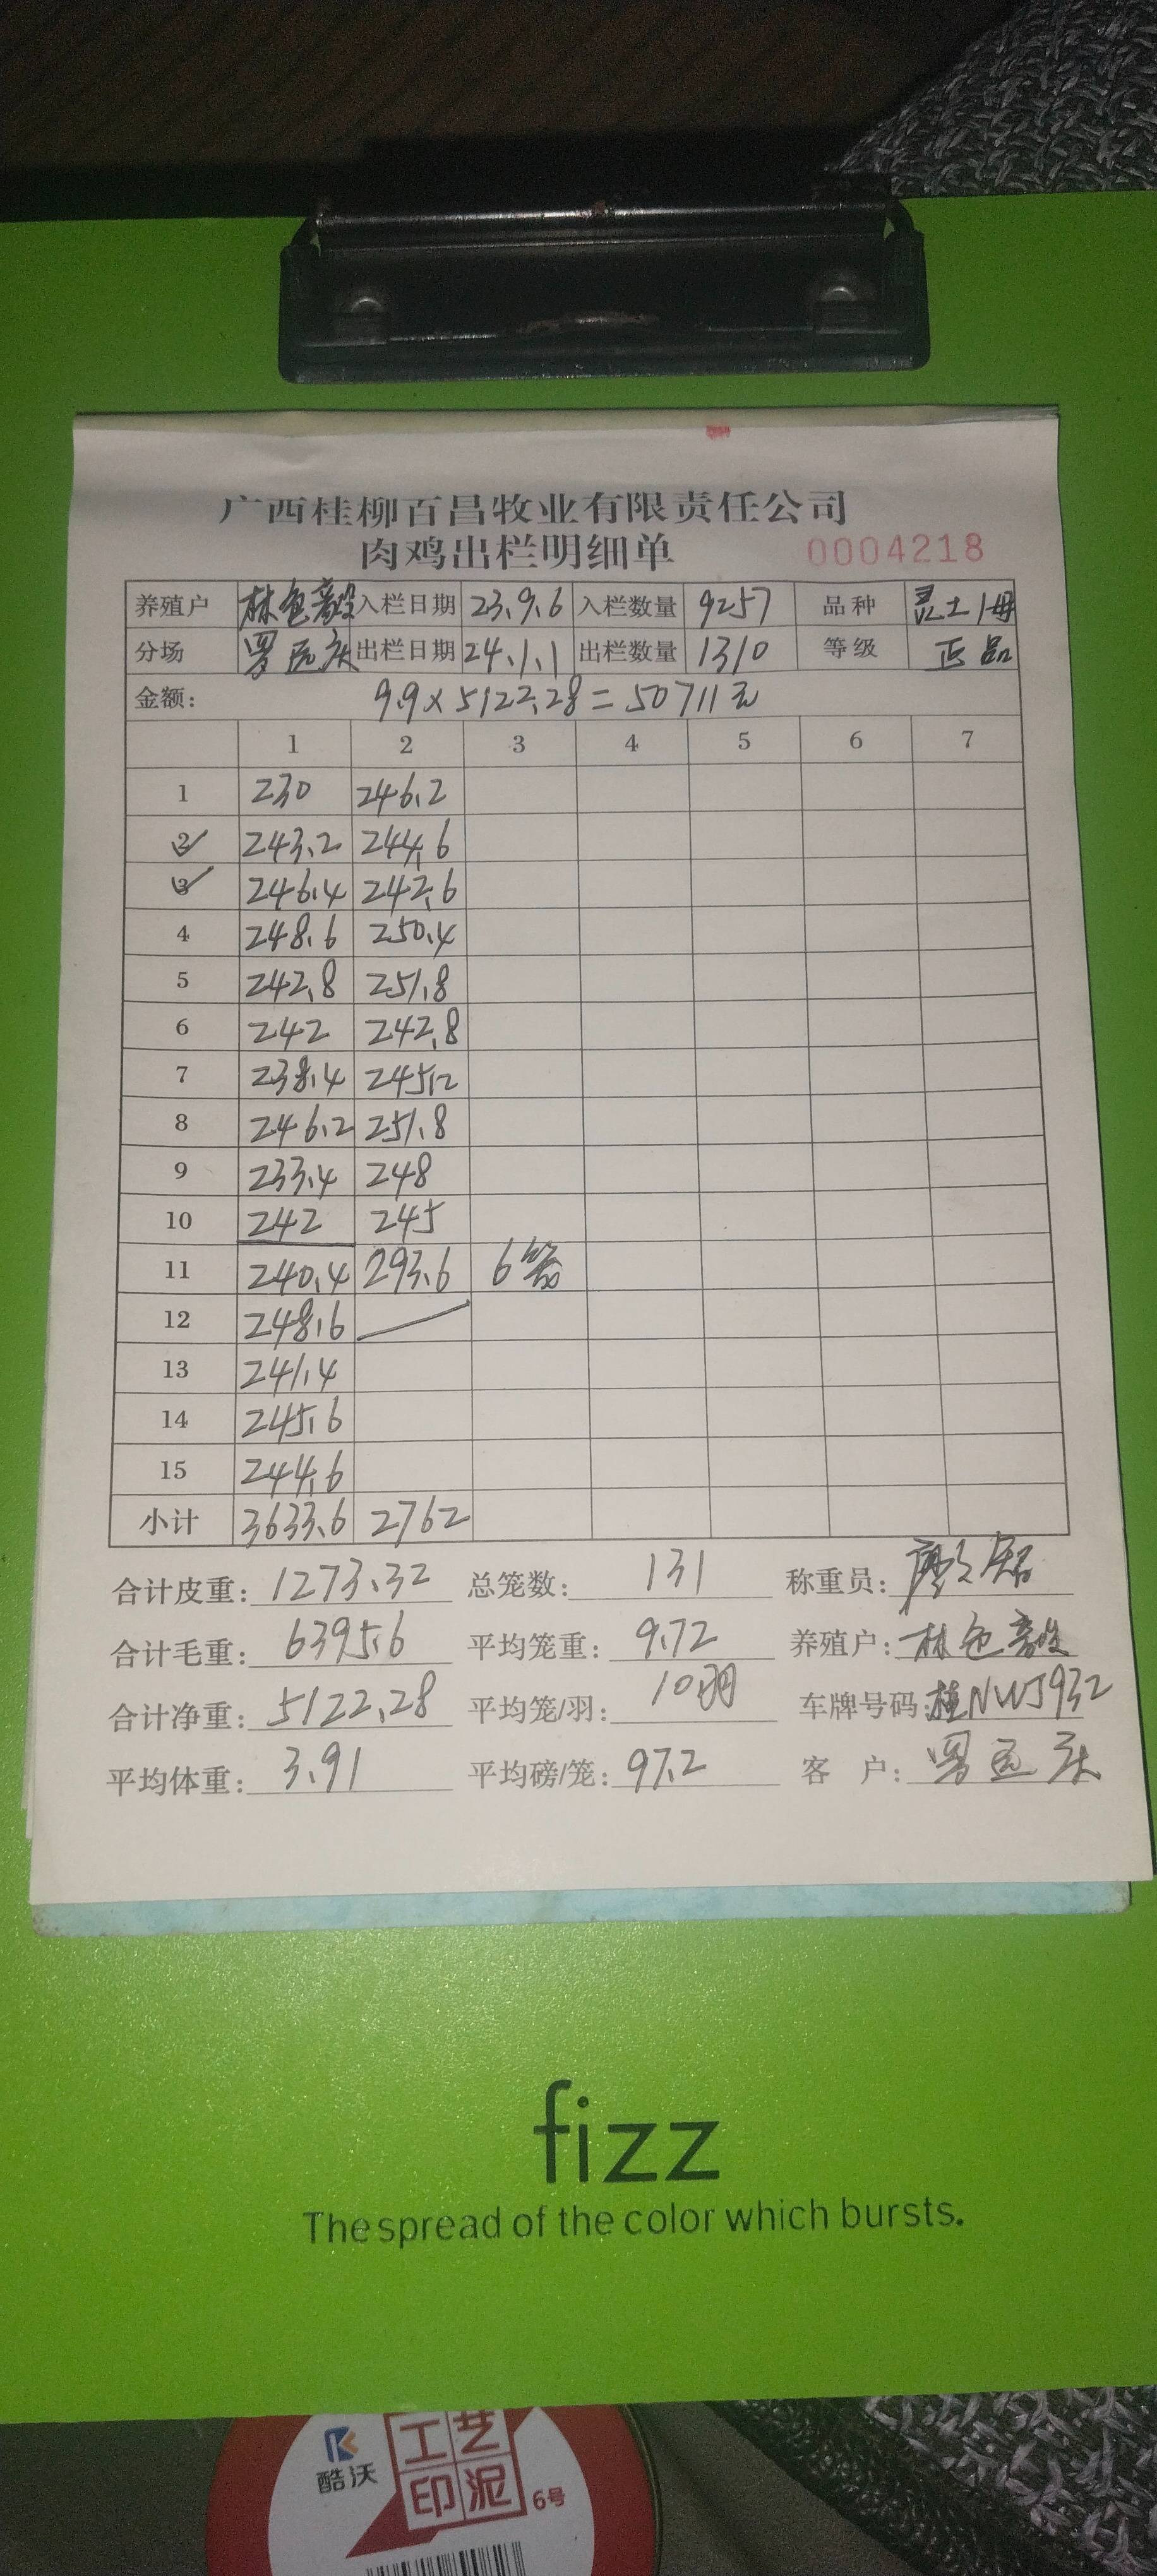 广西桂柳百昌牧业有限责任公司
肉鸡出栏明细单 0004218
养殖户 林色毅 入栏日期 23.9.6 入栏数量 9257 品种 灵土1母
分场 出栏日期 24.1.1 出栏数量 1310 等级 正品
金额: 9.9×5122.28=50711元
1 2 3 4 5 6 7
1 230 246.2
2 243.2 244.6
3 246.4 242.6
4 248.6 250.4
5 242.8 251.8
6 242 242.8
7 238.4 245.2
8 246.2 251.8
9 233.4 248
10 242 245
11 240.4 293.6 6笼
12 248.6
13 241.4
14 245.6
15 244.6
小计 3633.6 2762
合计皮重: 1273.32 总笼数: 131 称重员:
合计毛重: 6395.6 平均笼重: 9.72 养殖户: 林色毅
合计净重: 5122.28 平均笼/羽: 10羽 车牌号码: 桂NWJ932
平均体重: 3.91 平均磅/笼: 97.2 客户:
fizz
The spread of the color which bursts.
酷沃
工艺
印泥
6号